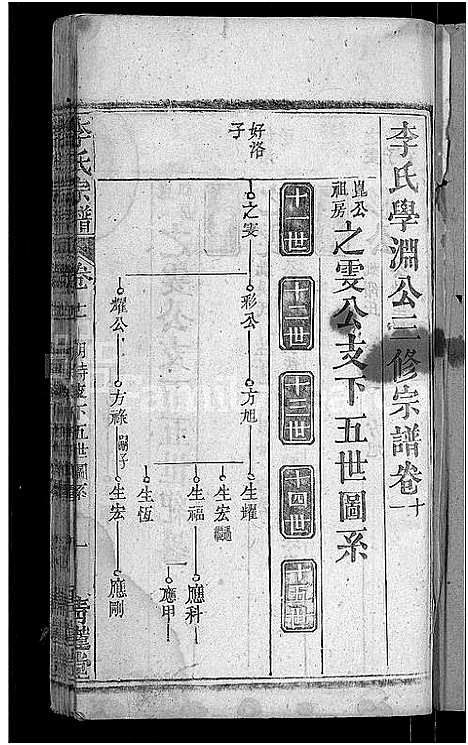 李氏學淵公三修宗譜卷十一
崑公祖房
之雯公支下五世圖系
十一世
十二世
十三世
十四世
十五世
好洛子
之雯
彤公
方旭
生耀
生宏
生福
應科
應甲
生恆
耀公
方祿
嗣子
生宏
應剛
李氏宗譜
卷十一
下五世圖系